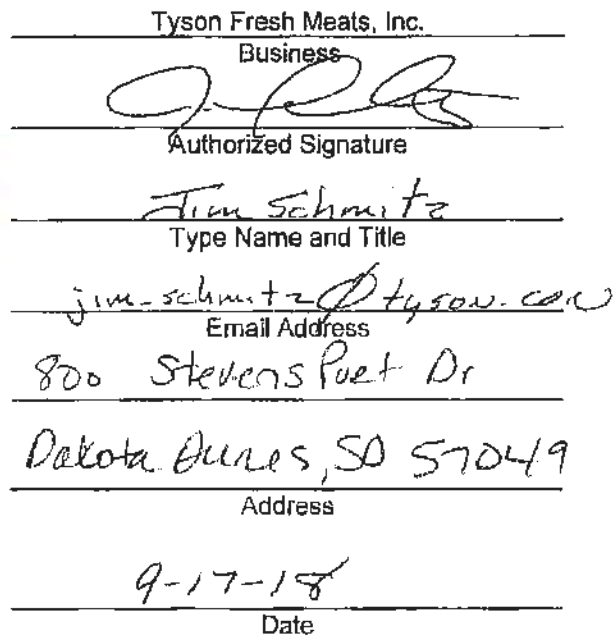 Tyson Fresh Meats, Inc.
Business
Authorized Signature
Jim Schmitz
Type Name and Title
jim-schmitz@tyson.com
Email Address
800 Stevens Port Dr
Dakota Dunes, SD 57049
Address
9-17-18
Date